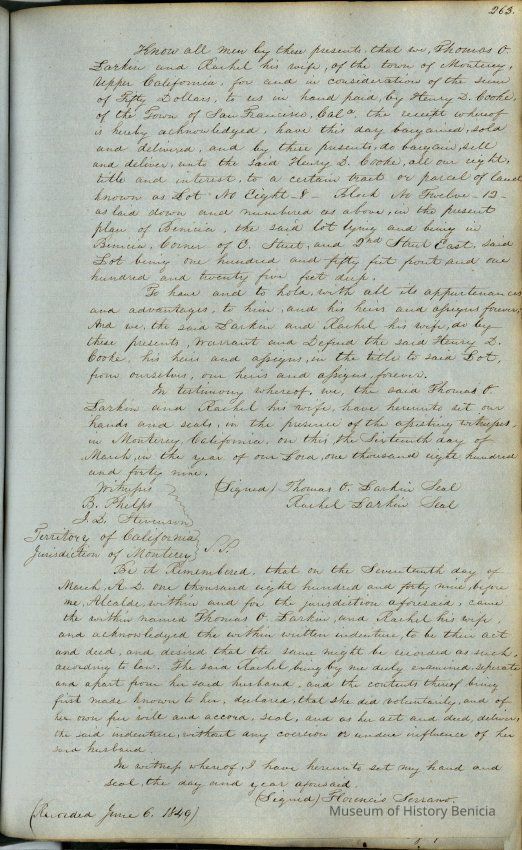 263.
Know all men by these presents, that we, Thomas O.
Larkin and Rachel his wife, of the town of Monterey,
Upper California, for and in consideration of the sum
of Fifty Dollars, to us in hand paid, by Henry D. Cooke,
of the Town of San Francisco, Cala. the receipt whereof
is hereby acknowledged, have this day bargained, sold
and delivered, and by these presents, do bargain, sell
and deliver, unto the said Henry D. Cooke, all our right,
title and interest, to a certain tract or parcel of land
known as Lot No Eight - 8 - Block No Twelve - 12 -
as laid down and numbered as above, in the present
plan of Benicia, the said lot lying and being in
Benicia, Corner of C. Street, and 2nd Street East, said
Lot being one hundred and fifty feet front and one
hundred and twenty five feet deep.
To have and to hold, with all its appurtenances
and advantages, to him, and his heirs and assigns forever;
And we, the said Larkin and Rachel his wife, do by
these presents, Warrant and Defend the said Henry D.
Cooke, his heirs and assigns, in the title to said Lot,
from ourselves, our heirs and assigns, forever.
In testimony whereof, we, the said Thomas O.
Larkin and Rachel his wife, have hereunto set our
hands and seals, in the presence of the attesting witnesses,
in Monterey, California, on this, the Sixteenth day of
March, in the year of our Lord, one thousand eight hundred
and forty nine.
Witness (Signed) Thomas O. Larkin Seal
B. Phelps Rachel Larkin Seal
J. D. Stevenson
Territory of California
Jurisdiction of Monterey S.S.
Be it Remembered, that on the Seventeenth day of
March, A.D. one thousand eight hundred and forty nine, before
me, Alcalde, within and for the jurisdiction aforesaid, came
the within named Thomas O. Larkin, and Rachel his wife,
and acknowledged the within written indenture, to be their act
and deed, and desired that the same might be recorded as such,
according to law. The said Rachel, being by me duly examined, seperate
and apart from her said husband, and the contents thereof being
first made known to her, declared, that she did voluntarily, and of
her own free will and accord, seal, and as her act and deed, deliver,
the said indenture, without any coercion or undue influence of her
said husband.
In witness whereof, I have hereunto set my hand and
seal, the day and year aforesaid.
(Signed) Florencio Serrano.
(Recorded June 6. 1849)
Museum of History Benicia